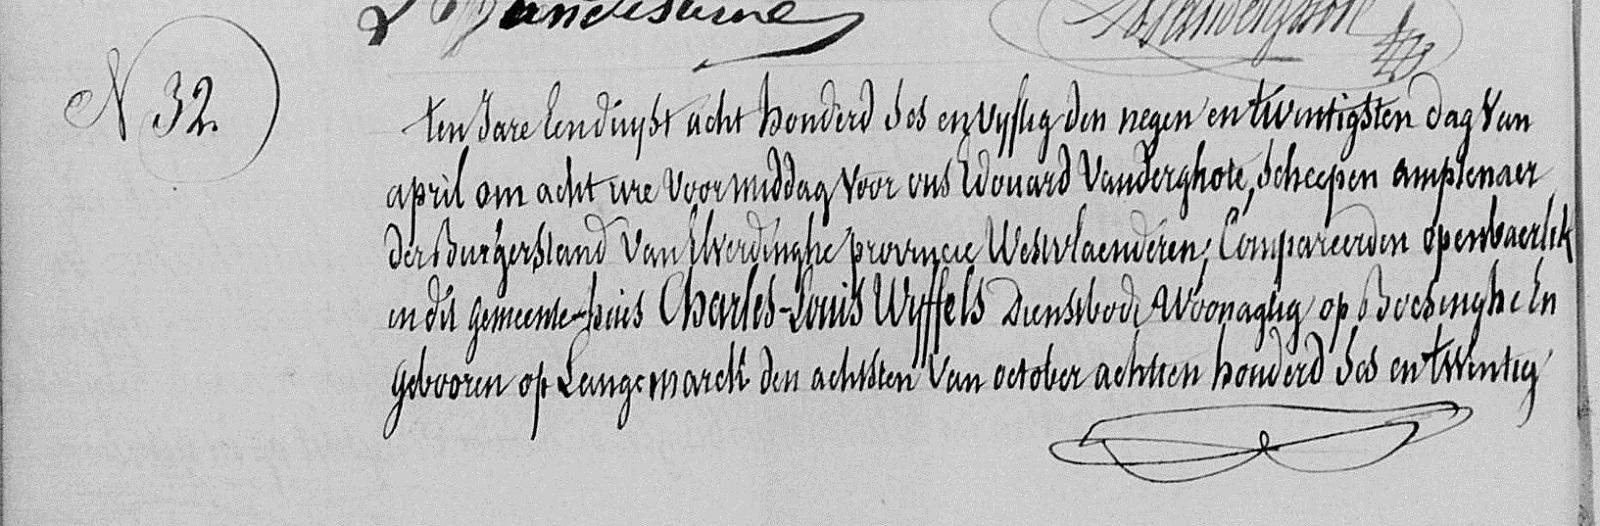 Vandesterne
N 32.
ten Jare Eenduijst acht honderd ses en vyftig den negen en twintigsten dag Van
april om acht ure Voormiddag Voor ons Edouard Vanderghote, Scheepen amptenaer
der Burgerstand Van Elverdinghe provincie Westvlaenderen, Compareerden openbaerlik
in dit gemeente-huis Charles-Louis Wyffels Dienstbode Woonagtig op Boesinghe En
gebooren op Langemarck den achtsten Van october achtien honderd ses en twintig